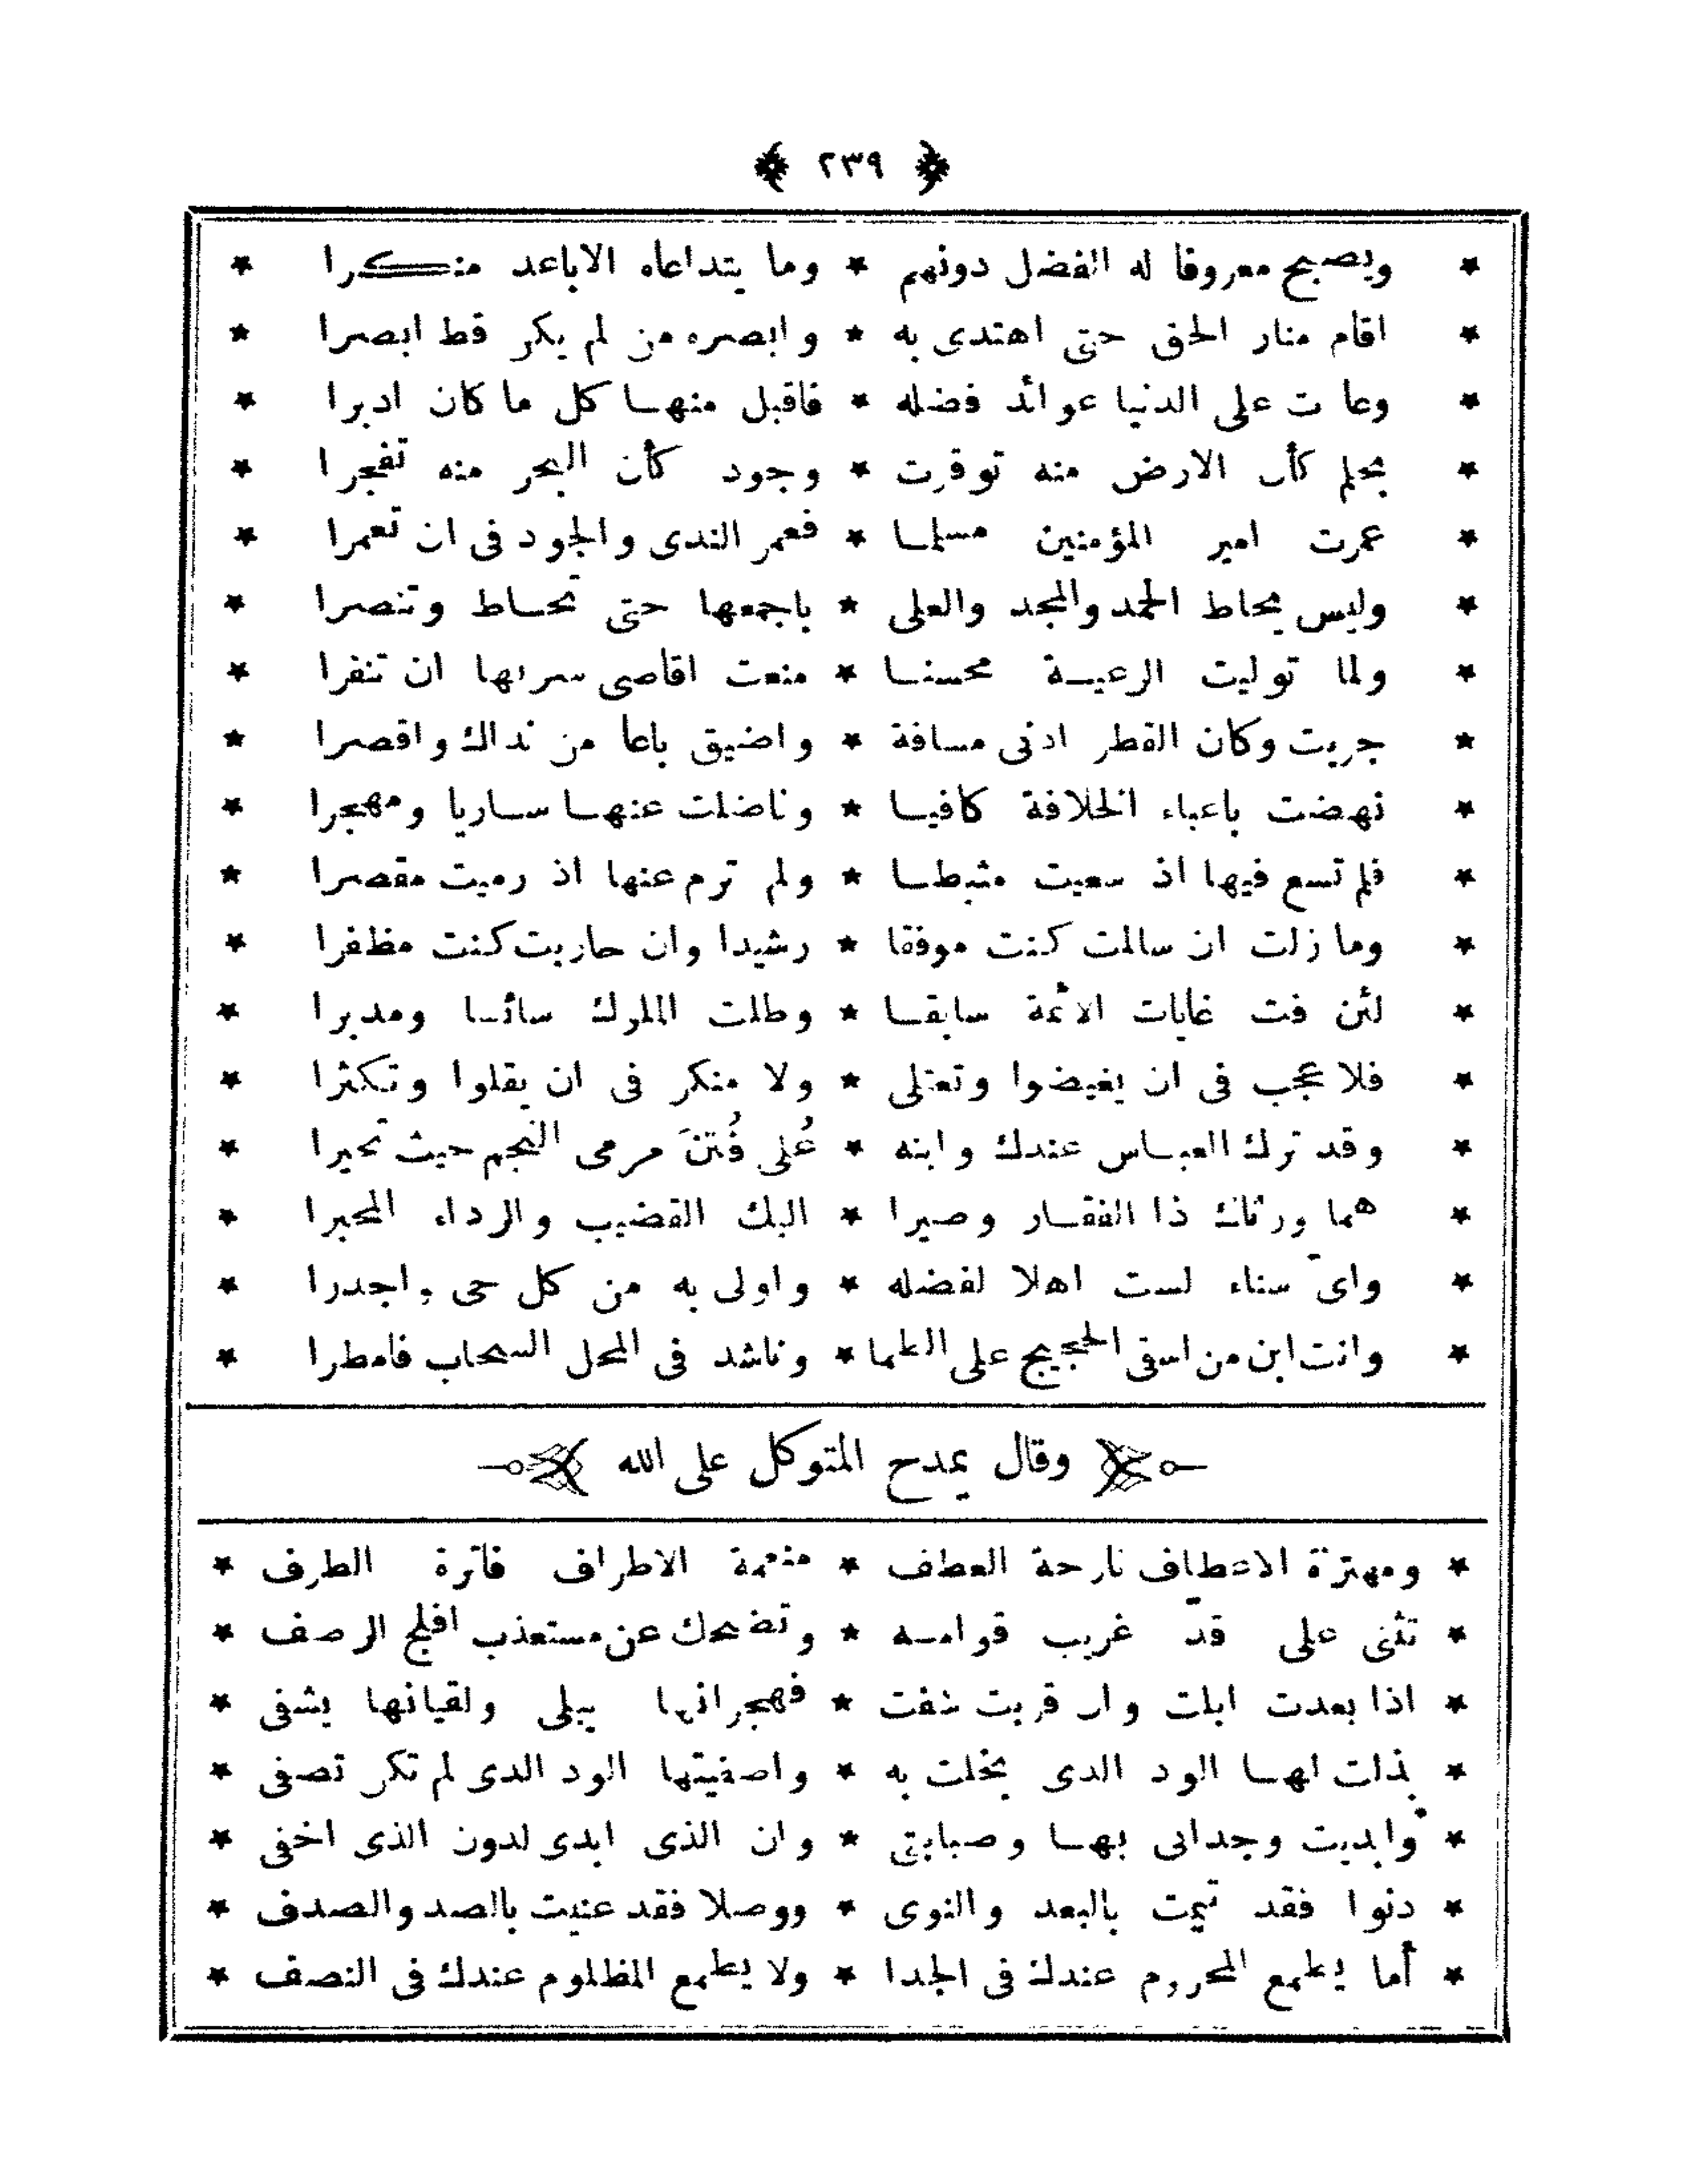 ﴿ ٢٣٩ ﴾
* ويصبح معروفا له الفضل دونهم * وما يتداعاه الاباعد منكرا *
* اقام منار الحق حتى اهتدى به * وابصره من لم يكن قط ابصرا *
* وعا ت على الدنيا عوائد فضله * فاقبل منها كل ما كان ادبرا *
* بحلم كأن الارض منه توقرت * وجود كأن البحر منه تفجرا *
* عمرت امير المؤمنين مسلما * فعمر الندى والجود فى ان تعمرا *
* وليس يحاط الحمد والمجد والعلى * باجمعها حتى تحاط وتنصرا *
* ولما توليت الرعية محسنا * منعت اقاصى سربها ان تنفرا *
* جريت وكان القطر ادنى مسافة * واضيق باعا من نداك واقصرا *
* نهضت باعباء الخلافة كافيا * وناضلت عنها ساريا ومهجرا *
* فلم تسع فيها اذ سعيت مثبطا * ولم ترم عنها اذ رميت مقصرا *
* وما زلت ان سالمت كنت موفقا * رشيدا وان حاربت كنت مظفرا *
* لئن فت غايات الائمة سابقا * وطلت الملوك سائسا ومدبرا *
* فلا عجب فى ان يغيضوا وتعتلى * ولا منكر فى ان يقلوا وتكثرا *
* وقد ترك العباس عندك وابنه * عُلى فُتنَ مرمى النجم حيث تحيرا *
* هما ورثاك ذا الفقار وصيرا * اليك القضيب والرداء المحبرا *
* واىّ سناء لست اهلا لفضله * واولى به من كل حى واجدرا *
* وانت ابن من اسقى الحجيج على الظما * وناشد فى المحل السحاب فامطرا *
وقال يمدح المتوكل على الله
* ومهتزة الاعطاف نازحة العطف * منعمة الاطراف فاترة الطرف *
* تثنى على قدّ غريب قوامه * وتضحك عن مستعذب افلج الرصف *
* اذا بعدت ابلت وان قربت شفت * فهجرانها يبلى ولقيانها يشفى *
* بذلت لها الود الذى بخلت به * واصفيتها الود الذى لم تكن تصفى *
* وابديت وجدانى بها وصبابتى * وان الذى ابدى لدون الذى اخفى *
* دنوا فقد تيمت بالبعد والنوى * ووصلا فقد عنيت بالصد والصدف *
* أما يطمع المحروم عندك فى الجدا * ولا يطمع المظلوم عندك فى النصف *